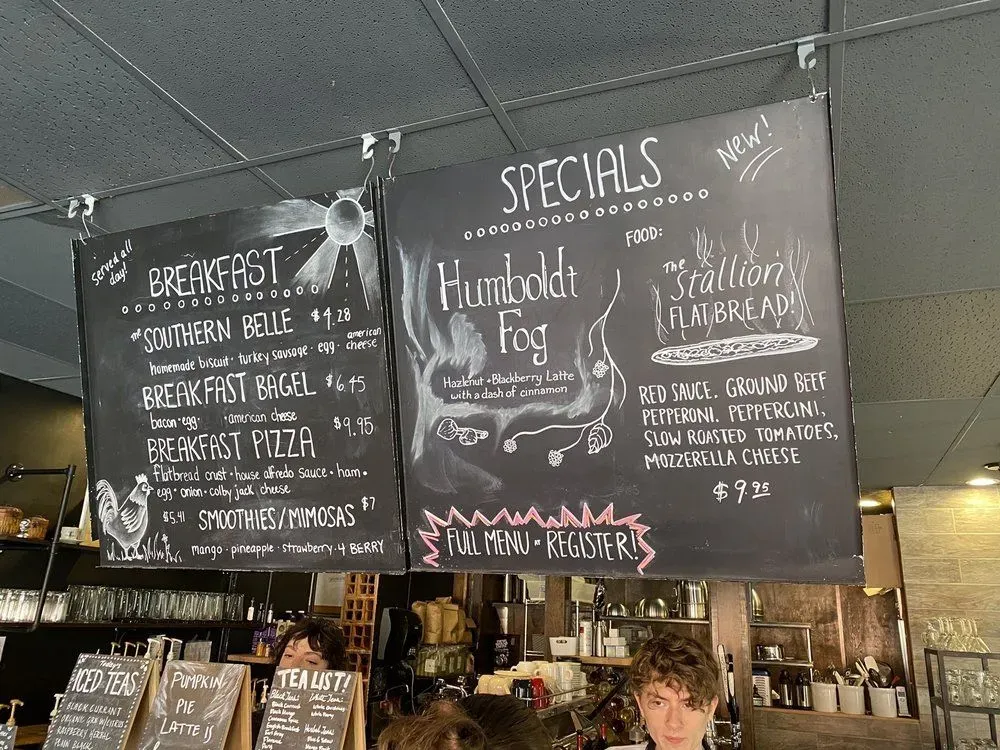 Served all
day!
BREAKFAST
THE SOUTHERN BELLE $4.28
homemade biscuit · turkey sausage · egg · american cheese
BREAKFAST BAGEL $6.45
bacon · egg · american cheese
BREAKFAST PIZZA $9.95
flatbread crust · house alfredo sauce · ham ·
egg · onion · colby jack cheese
$5.41 SMOOTHIES/MIMOSAS $7
mango · pineapple · strawberry · 4 BERRY
SPECIALS
New!
Humboldt
Fog
Hazlenut + Blackberry Latte
with a dash of cinnamon
FOOD:
The
Stallion
FLATBREAD!
RED SAUCE, GROUND BEEF
PEPPERONI, PEPPERCINI,
SLOW ROASTED TOMATOES,
MOZZERELLA CHEESE
$9.95
FULL MENU AT REGISTER!
Today's
ICED TEAS
BLACK CURRANT
RASPBERRY HERBAL
PLAIN BLACK
PUMPKIN
PIE
LATTE IS
TEA LIST!